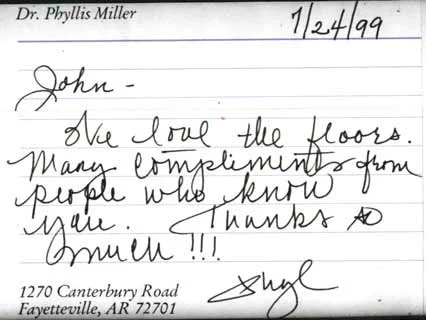 Dr. Phyllis Miller
7/24/99
John -
We love the floors.
Many compliments from
people who know
you. Thanks so
much !!!
1270 Canterbury Road
Fayetteville, AR 72701